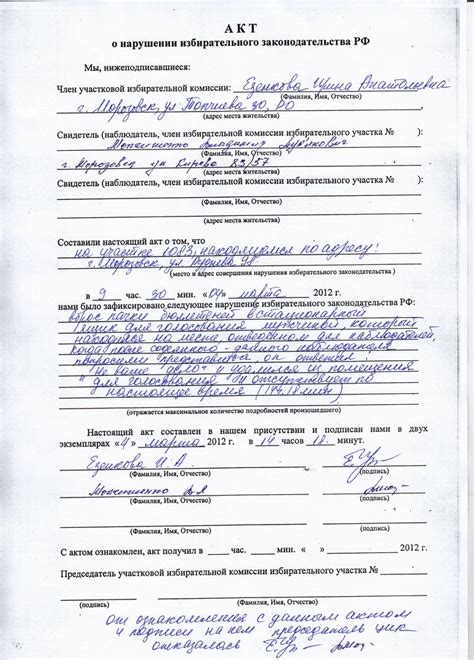 АКТ
о нарушении избирательного законодательства РФ
Мы, нижеподписавшиеся:
Член участковой избирательной комиссии: Езенкова Ирина Анатольевна
(Фамилия, Имя, Отчество)
г. Морозовск, ул 30, РО
(адрес места жительства)
Свидетель (наблюдатель, член избирательной комиссии избирательного участка № ):
Владимир
(Фамилия, Имя, Отчество)
г. Морозовск ул Кирова 83/57
(адрес места жительства)
Свидетель (наблюдатель, член избирательной комиссии избирательного участка № ):
(Фамилия, Имя, Отчество)
(адрес места жительства)
Составили настоящий акт о том, что
на участке 1083, находящимся по адресу:
г. Морозовск, ул
(место и адрес совершения нарушения избирательного законодательства )
в 9 час. 30 мин «04» марта 2012 г.
нами было зафиксировано следующее нарушение избирательного законодательства РФ:
вброс пачки бюллетеней в стационарный
ящик для голосования, мужчиной, который
находился на месте отведенном для наблюдателей,
когда после
попросили представится, он ответил:
"Не ваше дело" и удалился из помещения
для голосования и отсутствует по
настоящее время (14ч. 18мин)
(отражается максимальное количество подробностей произошедшего)
Настоящий акт составлен в нашем присутствии и подписан нами в двух
экземплярах «4» марта 2012 г. в 14 часов 18 минут.
Езенкова И. А.
(Фамилия, Имя, Отчество) (подпись)
(Фамилия, Имя, Отчество) (подпись)
(Фамилия, Имя, Отчество) (подпись)
С актом ознакомлен, акт получил в час. мин. « » 2012 г.
Председатель участковой избирательной комиссии избирательного участка №
(подпись) (Фамилия, Имя, Отчество)
от ознакомления с данным актом
и подписи на нем председатель
отказалась